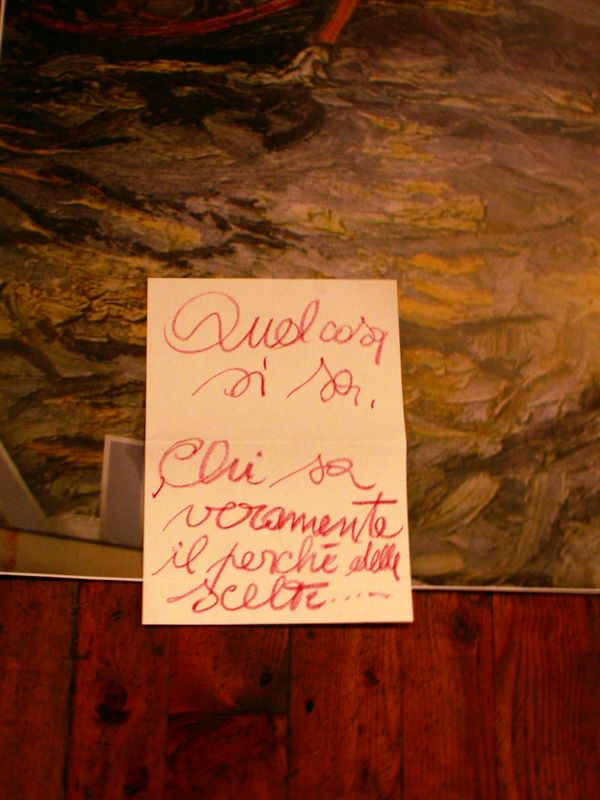 Qualcosa
si sa.
Chi sa
veramente
il perchè delle
scelte.....